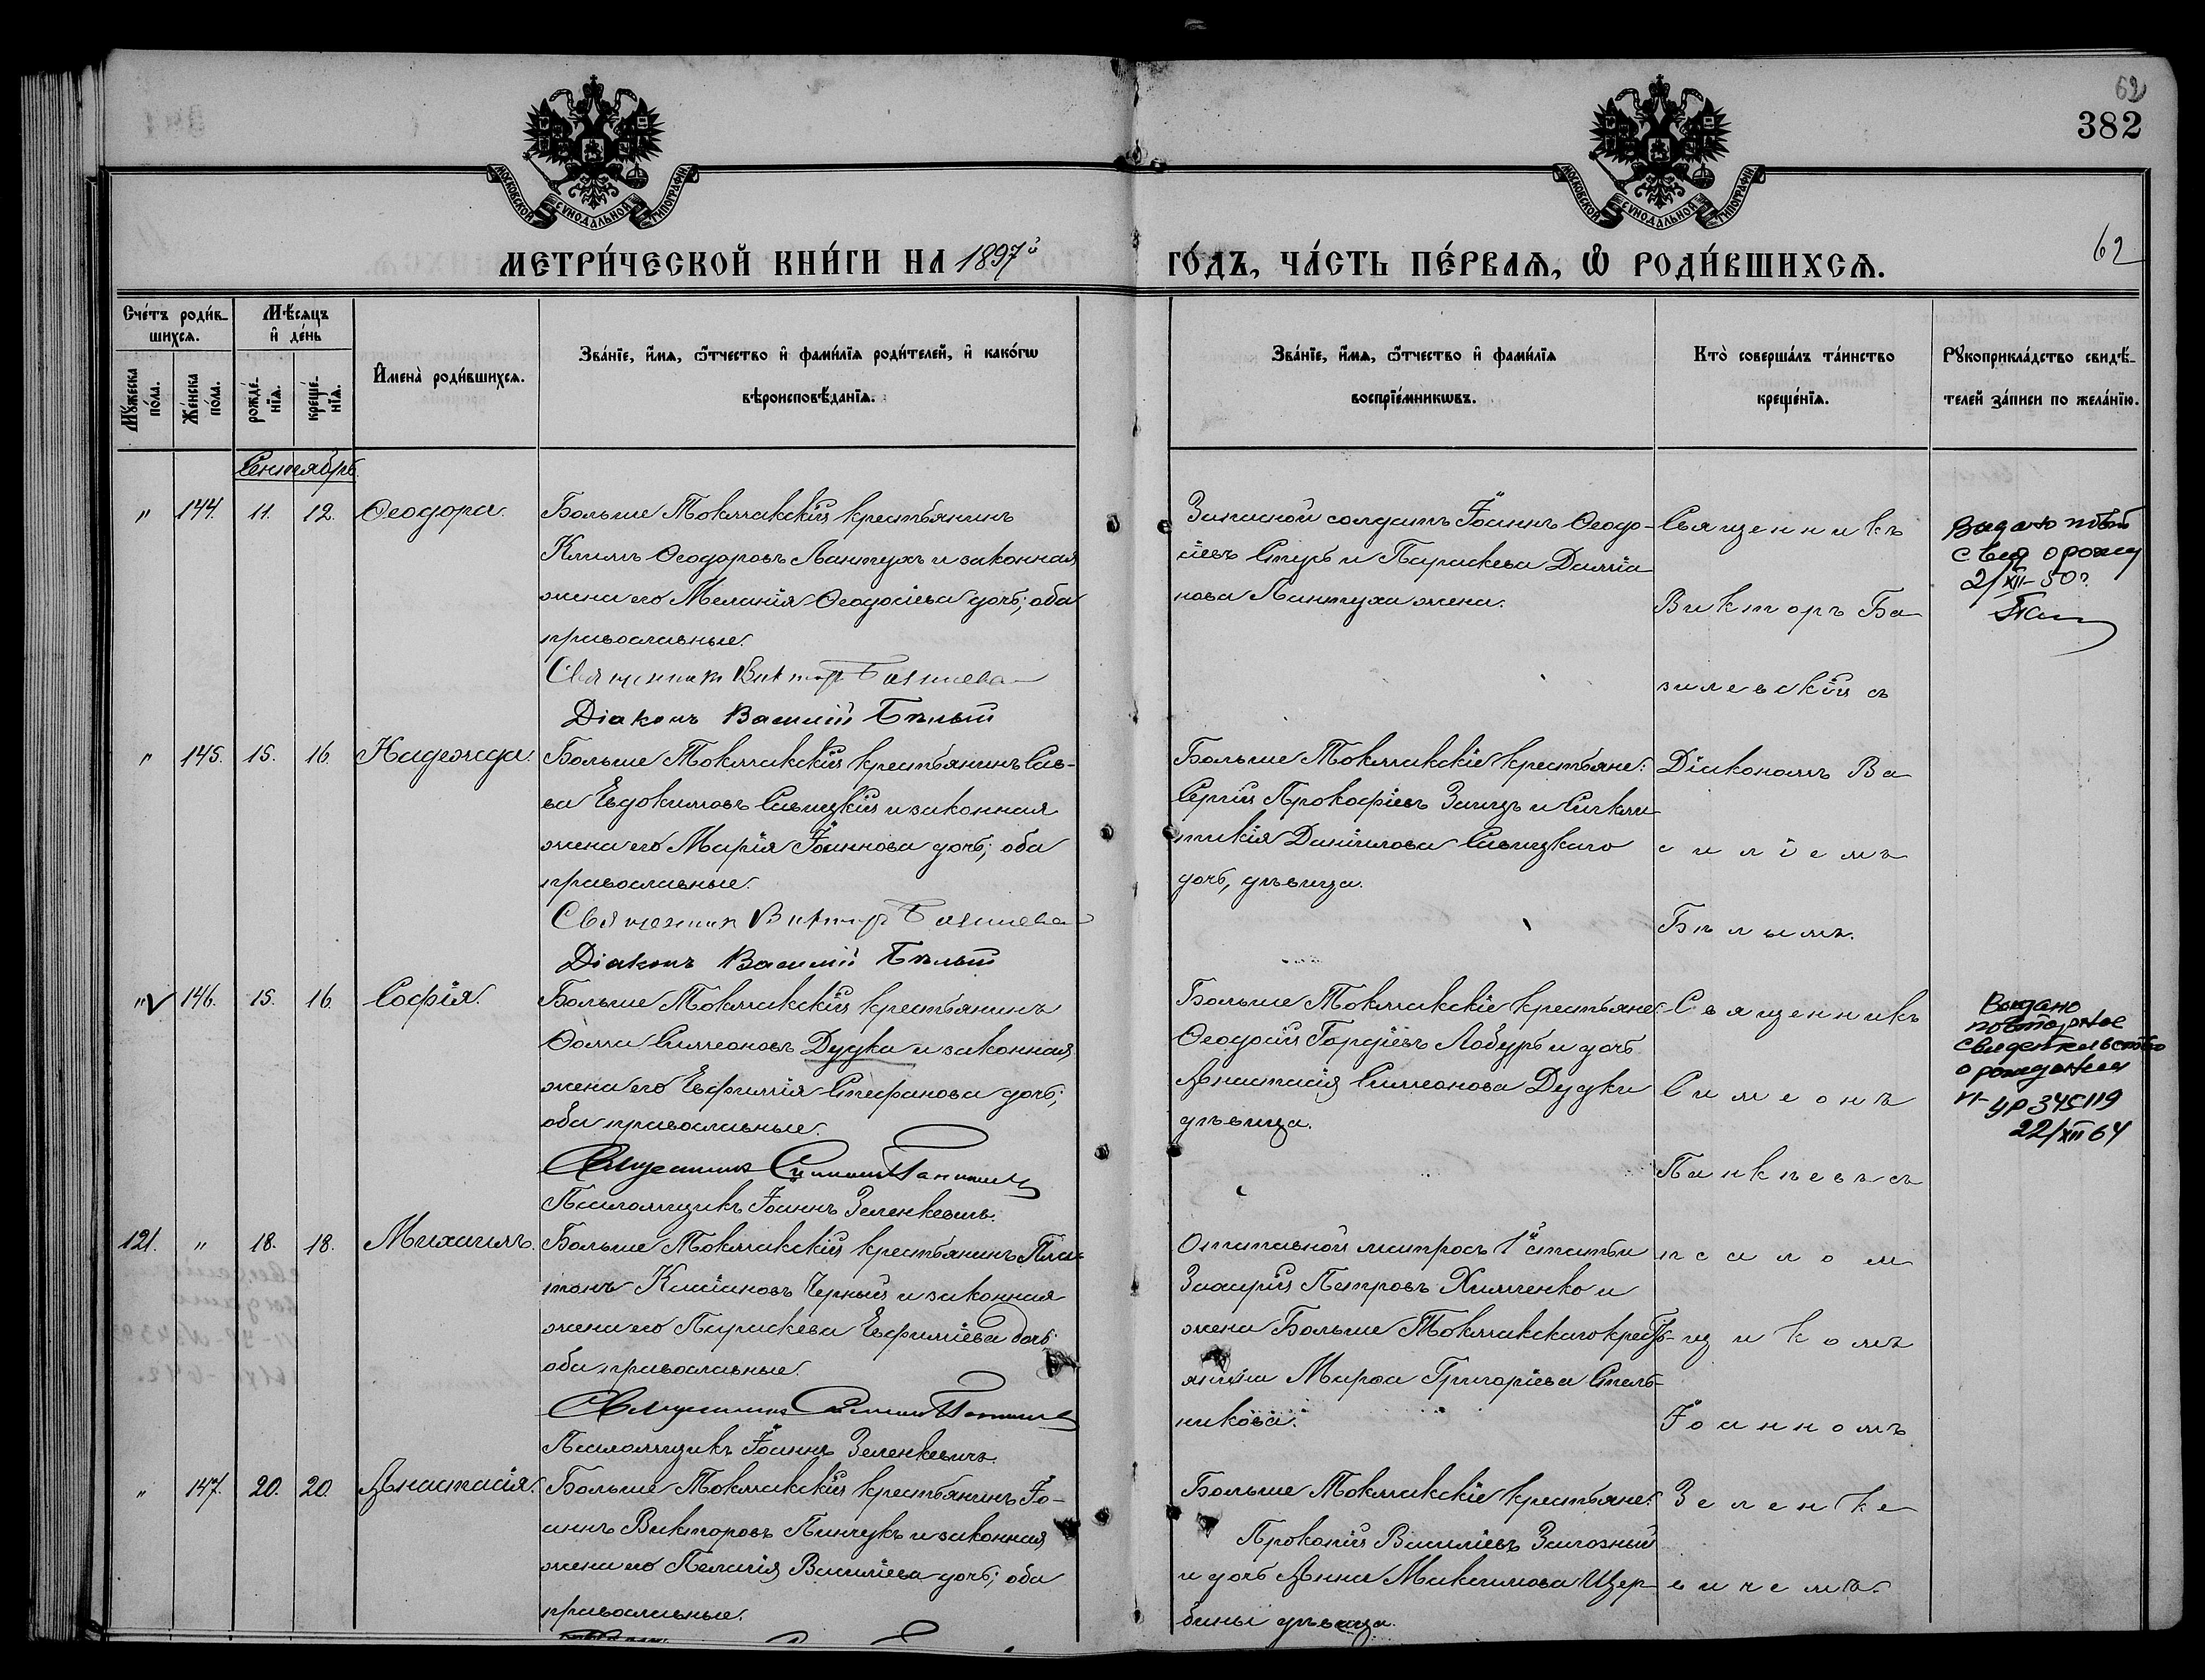 62
382
МОСКОВСКОЙ СѴНОДАЛЬНОЙ ТИПОГРАФІИ
МОСКОВСКОЙ СѴНОДАЛЬНОЙ ТИПОГРАФІИ
МЕТРИ́ЧЕСКОЙ КНИ́ГИ НА 1897й
ГО́ДЪ, ЧА́СТЬ ПЕ́РВАѦ, Ѡ҆ РОДИ́ВШИХСѦ.
62
Сче́тъ роди́в-
шихсѧ.
Мѣ́сѧцъ
и҆ де́нь
Мꙋ́жеска по́ла.
Же́нска по́ла.
рожде́-нїѧ.
креще́-нїѧ.
И҆мена̀ роди́вшихсѧ.
Зва́нїе, и҆́мѧ, ѻ҆́тчество и҆ фами́лїѧ роди́телей, и҆ како́гѡ
вѣроисповѣ́данїѧ.
Зва́нїе, и҆́мѧ, ѻ҆́тчество и҆ фами́лїѧ
воспрїе́мникѡвъ.
Кто̀ соверша́лъ та́инство
креще́нїѧ.
Рꙋкоприкла́дство свидѣ́-
телей за́писи по жела́нїю.
Сентябрь.
" 144. 11. 12. Ѳеодора.
Больше Токмакскій крестьянинъ
Климъ Ѳеодоровъ Лантухъ и законная
жена его Меланія Ѳеодосіева дочь; оба
православные.
Священник Виктор Базилев
Діаконъ Василій Бѣлый
Запасной солдатъ Іоаннъ Ѳеодо-
сіевъ и Параскева Даміа-
нова Лантуха жена.
Священникъ
Викторъ Ба
зилевскій съ
2/XII-50г.
" 145. 15. 16. Надежда.
Больше Токмакскій крестьянинъ Сав-
ва Евдокимовъ Савицкій и законная
жена его Марія Іоаннова дочь; оба
православные.
Священник Виктор Базилев
Діаконъ Василій Бѣлый
Больше Токмакскіе крестьяне:
Сергій Прокофіевъ Заицъ и
Даніилова Савицкаго
дочь, дѣвица.
Діакономъ Ва
силіемъ
Бѣлымъ.
" V 146. 15. 16. Софія.
Больше Токмакскій крестьянинъ
Ѳома Симеоновъ Дудка и законная
жена его Евфимія Стефанова дочь;
оба православные.
Псаломщикъ Іоаннъ Зеленкевичъ.
Больше Токмакскіе крестьяне:
Ѳеодосій Гордіевъ Лобурь и дочь
Анастасія Симеонова Дудки
дѣвица.
Священникъ
Симеонъ
Панкѣевъ съ
Выдано
повторное
свидетельство
о рождении
УР 345119
22/XII 64
121. " 18. 18. Михаилъ.
Больше Токмакскій крестьянинъ Пла-
тонъ Кассіановъ Черный и законная
жена его Параскева Евфиміева дочь
оба православные.
Псаломщикъ Іоаннъ Зеленкевичъ.
Отставной матросъ 1й статьи
Захарій Петровъ Химченко и
жена Больше Токмакскаго кресть-
янина Марѳа Григоріева Стель-
никова.
псалом
щикомъ
Іоанномъ
" 147. 20. 20. Анастасія.
Больше Токмакскій крестьянинъ Іо-
аннъ Викторовъ Пинчукъ и законная
жена его Пелагія Василіева дочь; оба
православные.
Больше Токмакскіе крестьяне:
Прокопій Василіевъ Загозный
и дочь Анна Максимова Щер-
бины дѣвица.
Зеленке
вичемъ.